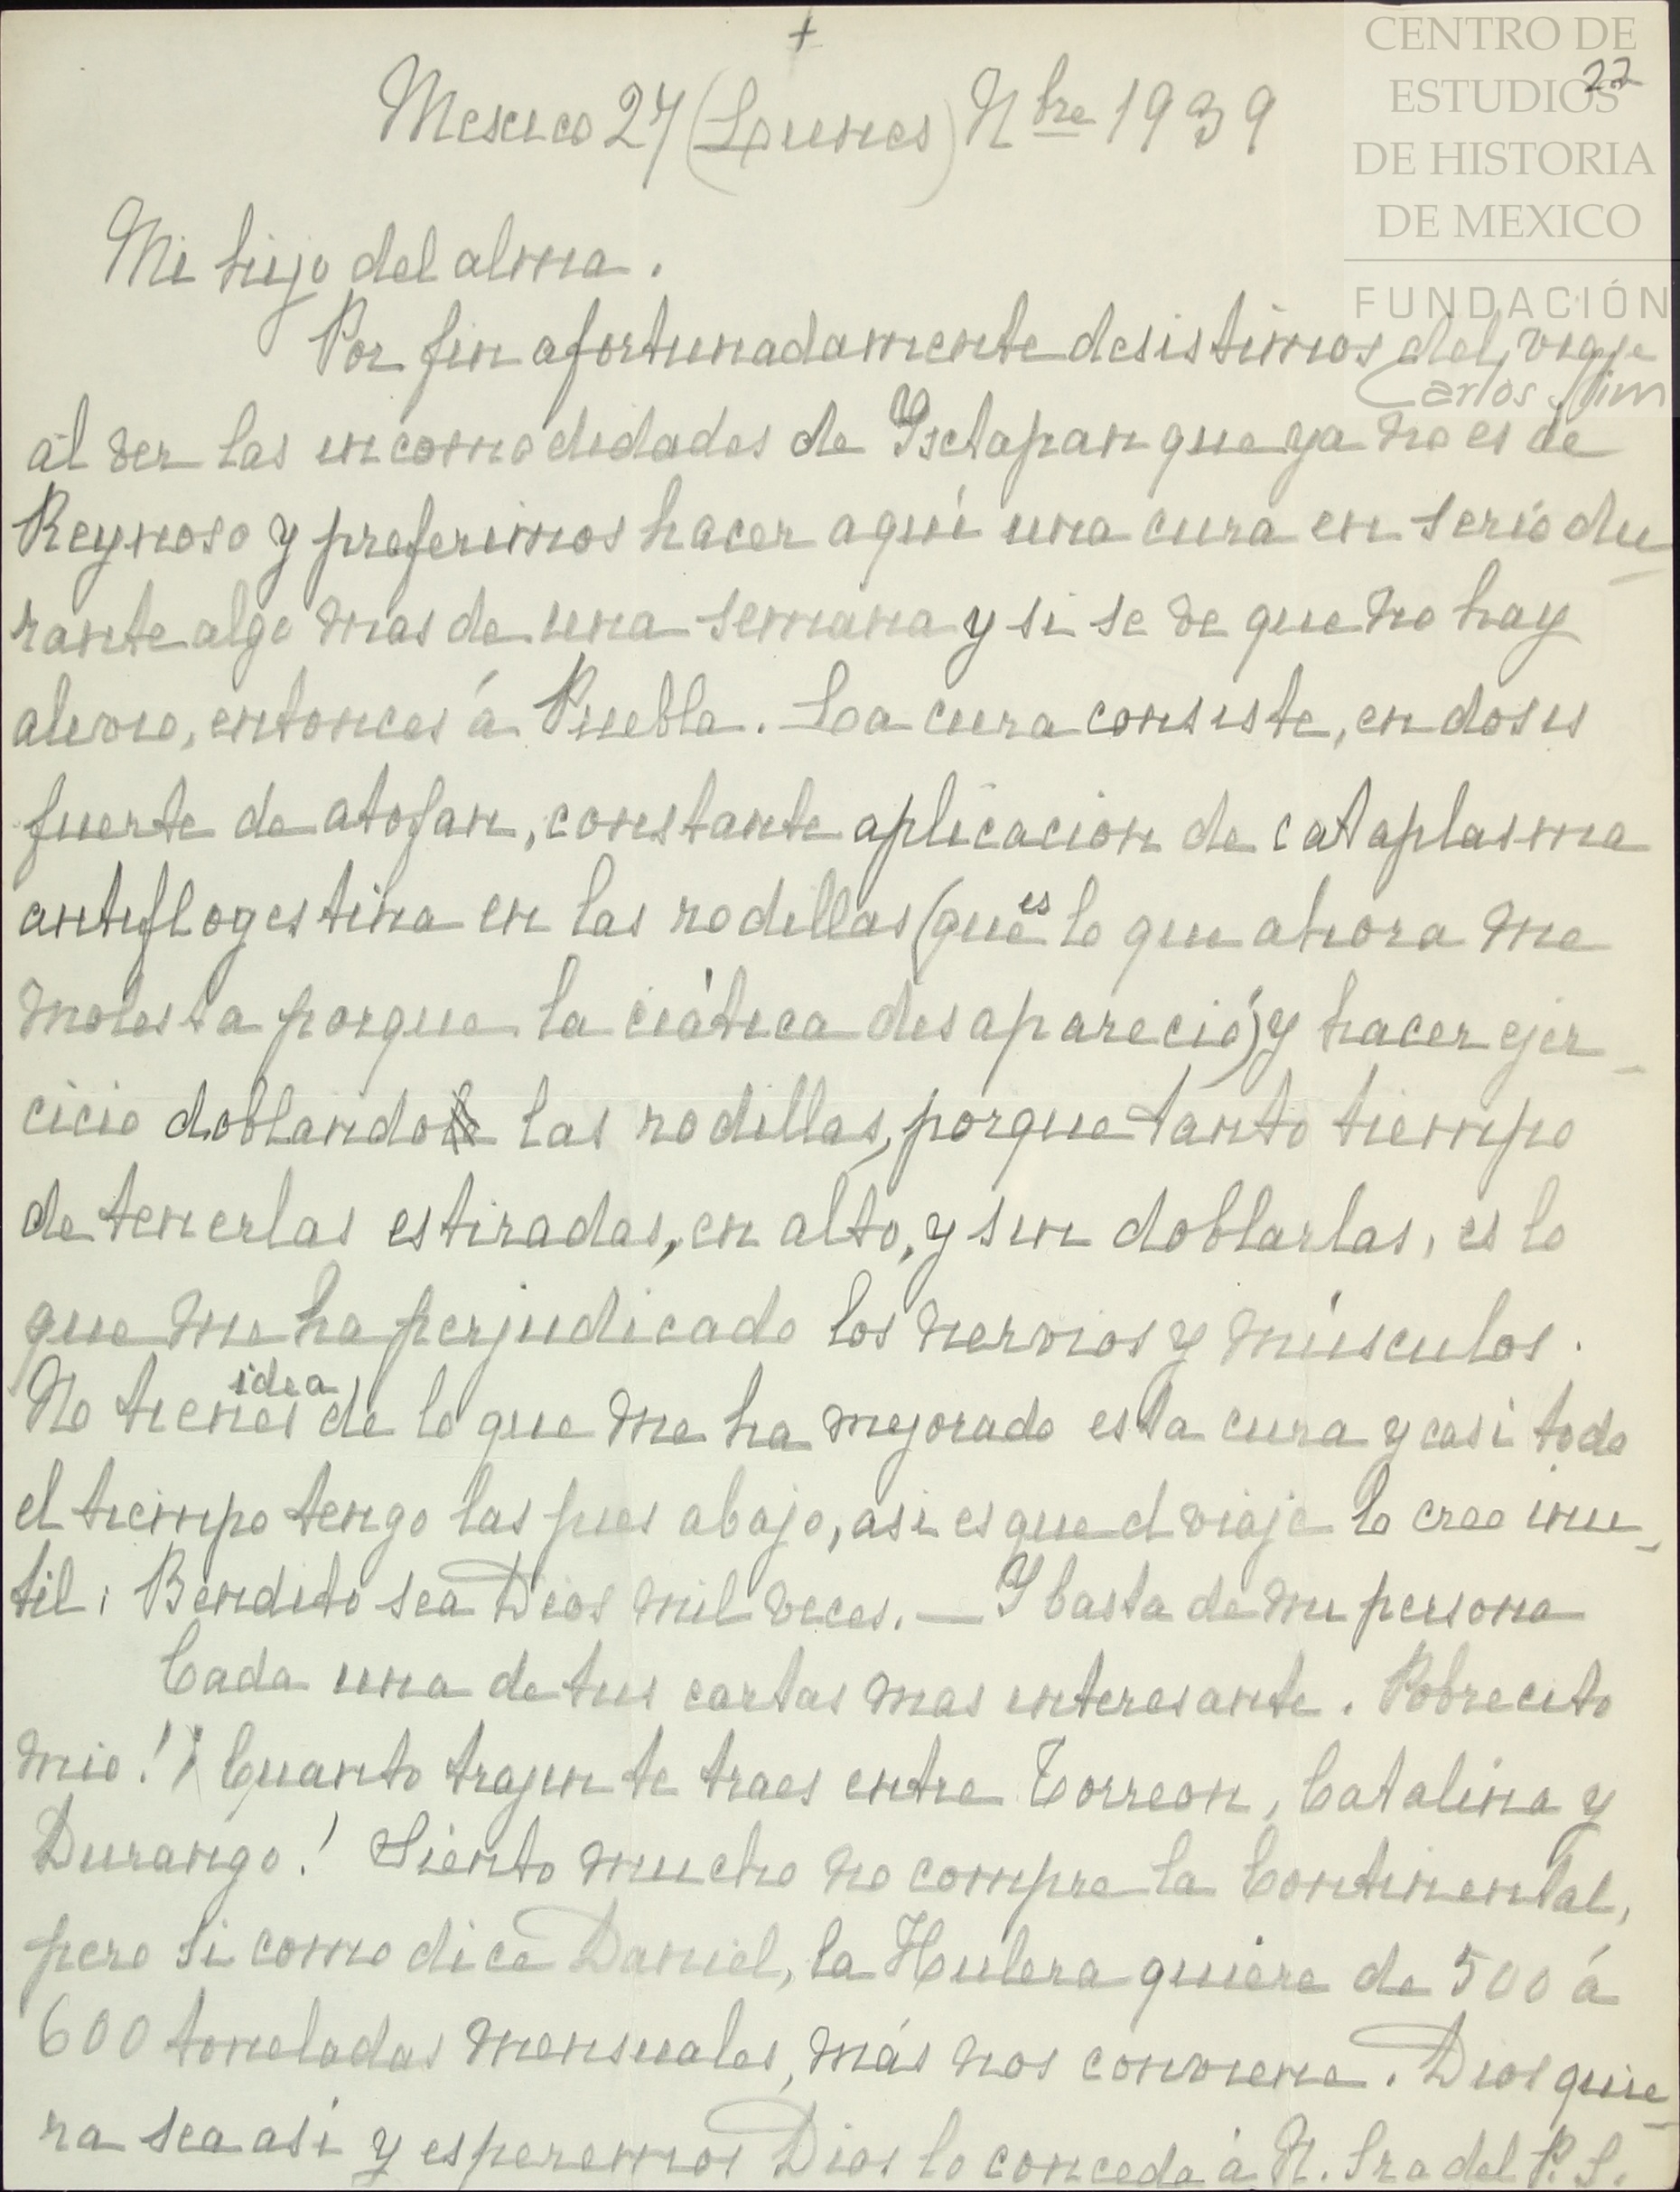 +
CENTRO DE
ESTUDIOS
DE HISTORIA
DE MEXICO
FUNDACIÓN
Carlos Slim
22
Mexico 27 (Lunes) Nbre 1939
Mi hijo del alma.
Por fin afortunadamente desistimos del viaje
al ver las incomodidades de Ixtapan que ya no es de
Reynoso y preferimos hacer aquí una cura en serio du_
rante algo mas de una semana y si se ve que no hay
alivio, entonces á Puebla. La cura consiste, en dosis
fuerte de atofan, constante aplicacion de cataplasma
antiflogestina en las rodillas (que es lo que ahora me
molesta porque la ciática desapareció) y hacer ejer_
cicio doblando las rodillas, porque tanto tiempo
de tenerlas estiradas, en alto, y sin doblarlas, es lo
que me ha perjudicado los nervios y músculos.
No tienes idea de lo que me ha mejorado esta cura y casi todo
el tiempo tengo las pies abajo, asi es que el viaje lo creo inu_
til. Bendito sea Dios mil veces. — Y basta de mi persona
Cada una de tus cartas mas interesante. Pobrecito
mio! ¡Cuanto trajin te traes entre Torreon, Catalina y
Durango! Siento mucho no compre la Continental,
pero si como dice Daniel, la Hulera quiere de 500 á
600 toneladas mensuales, más nos conviene. Dios quie_
ra sea asi y esperemos Dios lo conceda á N. Sra del P. S.